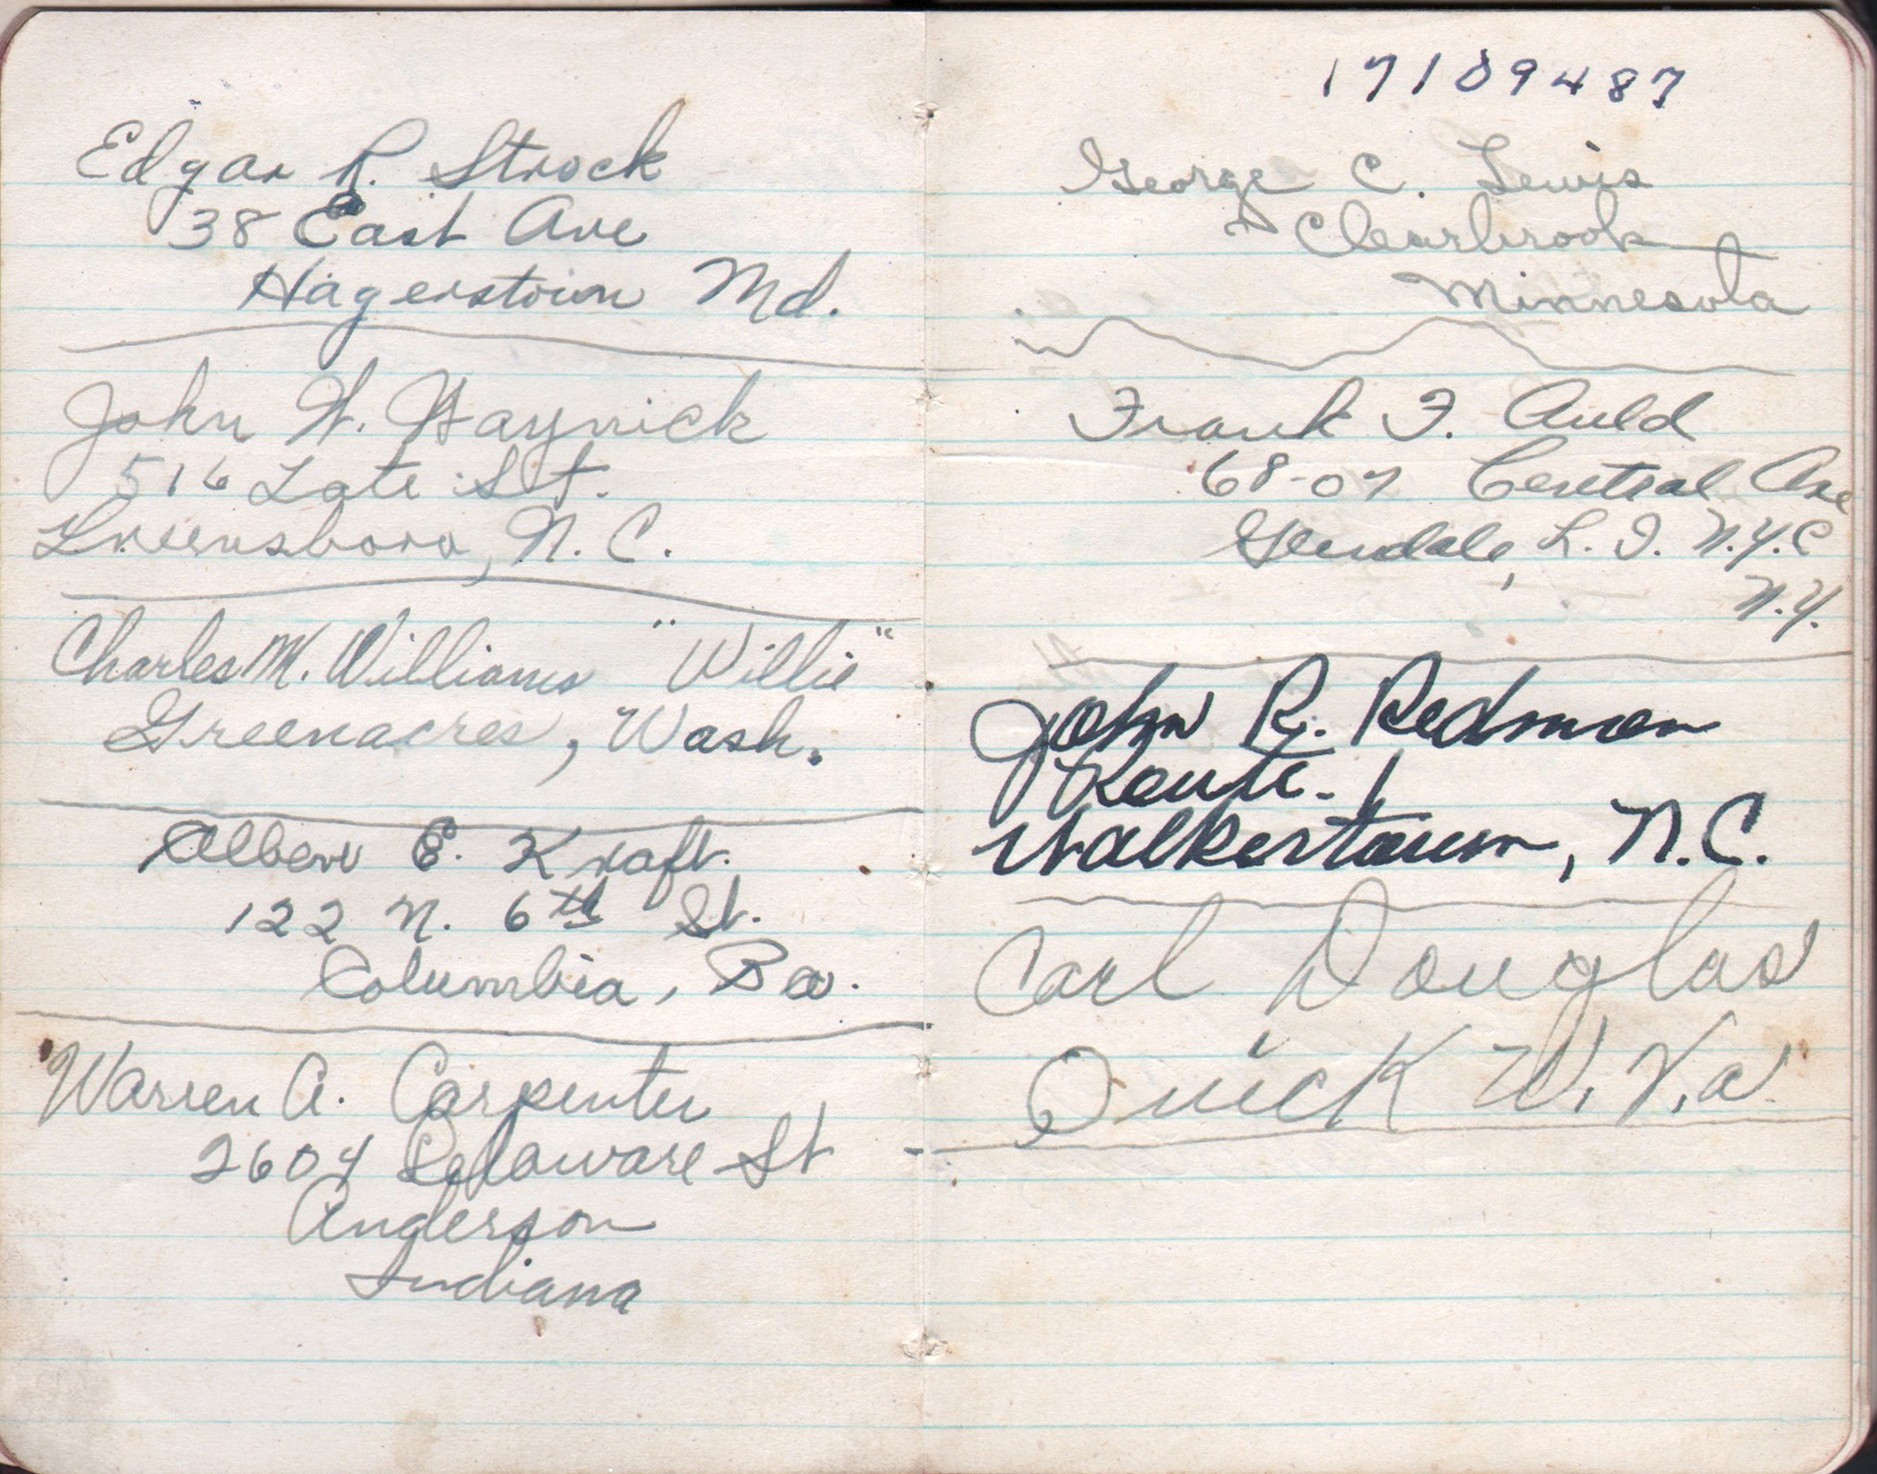 Edgar R. Strock
38 East Ave
Hagerstown Md.
John W. Gaynick
516 Late St.
Greensboro, N. C.
Charles M. Williams "Willie"
Greenacres, Wash.
Albert E. Kraft.
122 N. 6th St.
Columbia, Pa.
Warren A. Carpenter
2604 Delaware St
Anderson
Indiana
17109487
George C. Lewis
Clearbrook
Minnesota
Frank F. Auld
68-07 Central Ave
Glendale, L. I. N.Y.C
N.Y.
John R. Redmon
Route. 1
Walkertown, N.C.
Carl Douglas
Quick W. Va